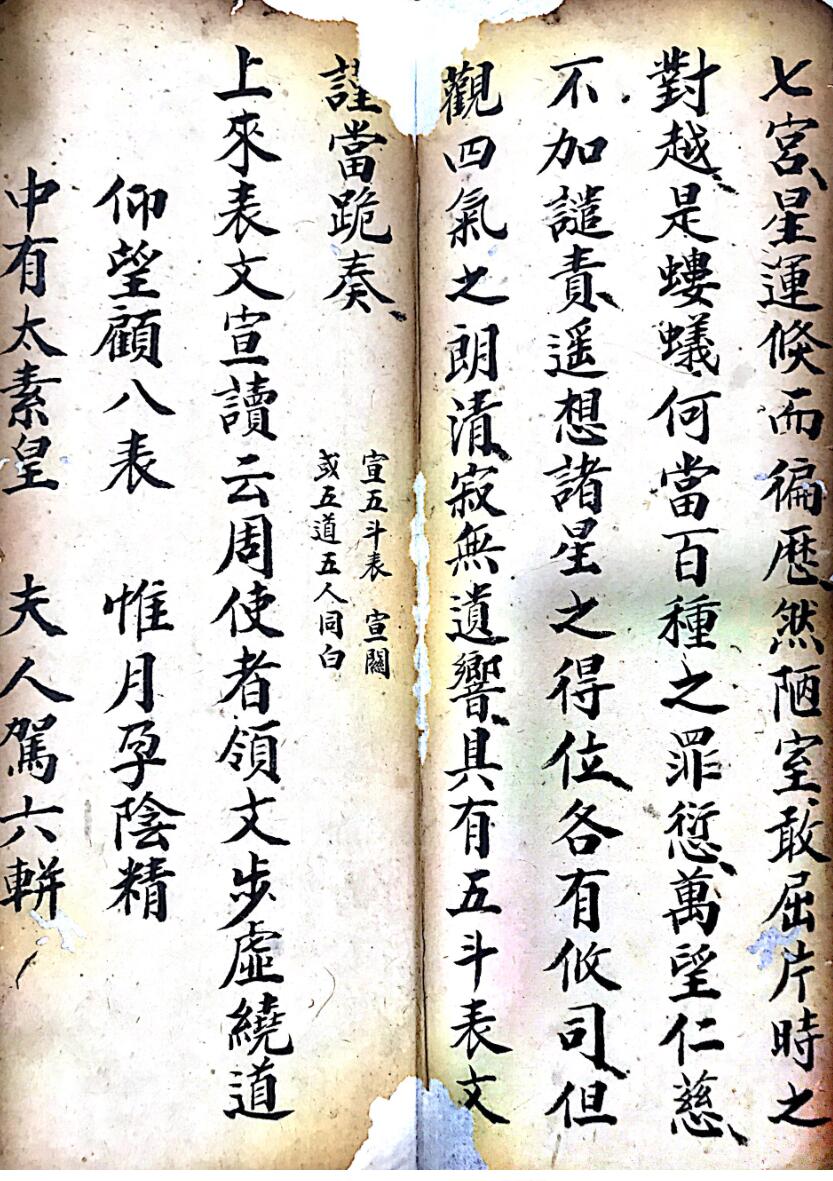 七宮、星運倐而徧歷、然陋室敢屈片時之
對越、是螻蟻何當百種之罪愆、萬望仁慈、
不加譴責、遥想諸星之得位、各有攸司、但
觀四氣之朗清、寂無遺響、具有五斗表文
謹當跪奏、
宣五斗表 宣關
或五道五人同白
上來表文宣讀云周使者領文步虛繞道
仰望顧八表 惟月孕陰精
中有太素皇 夫人駕六軿